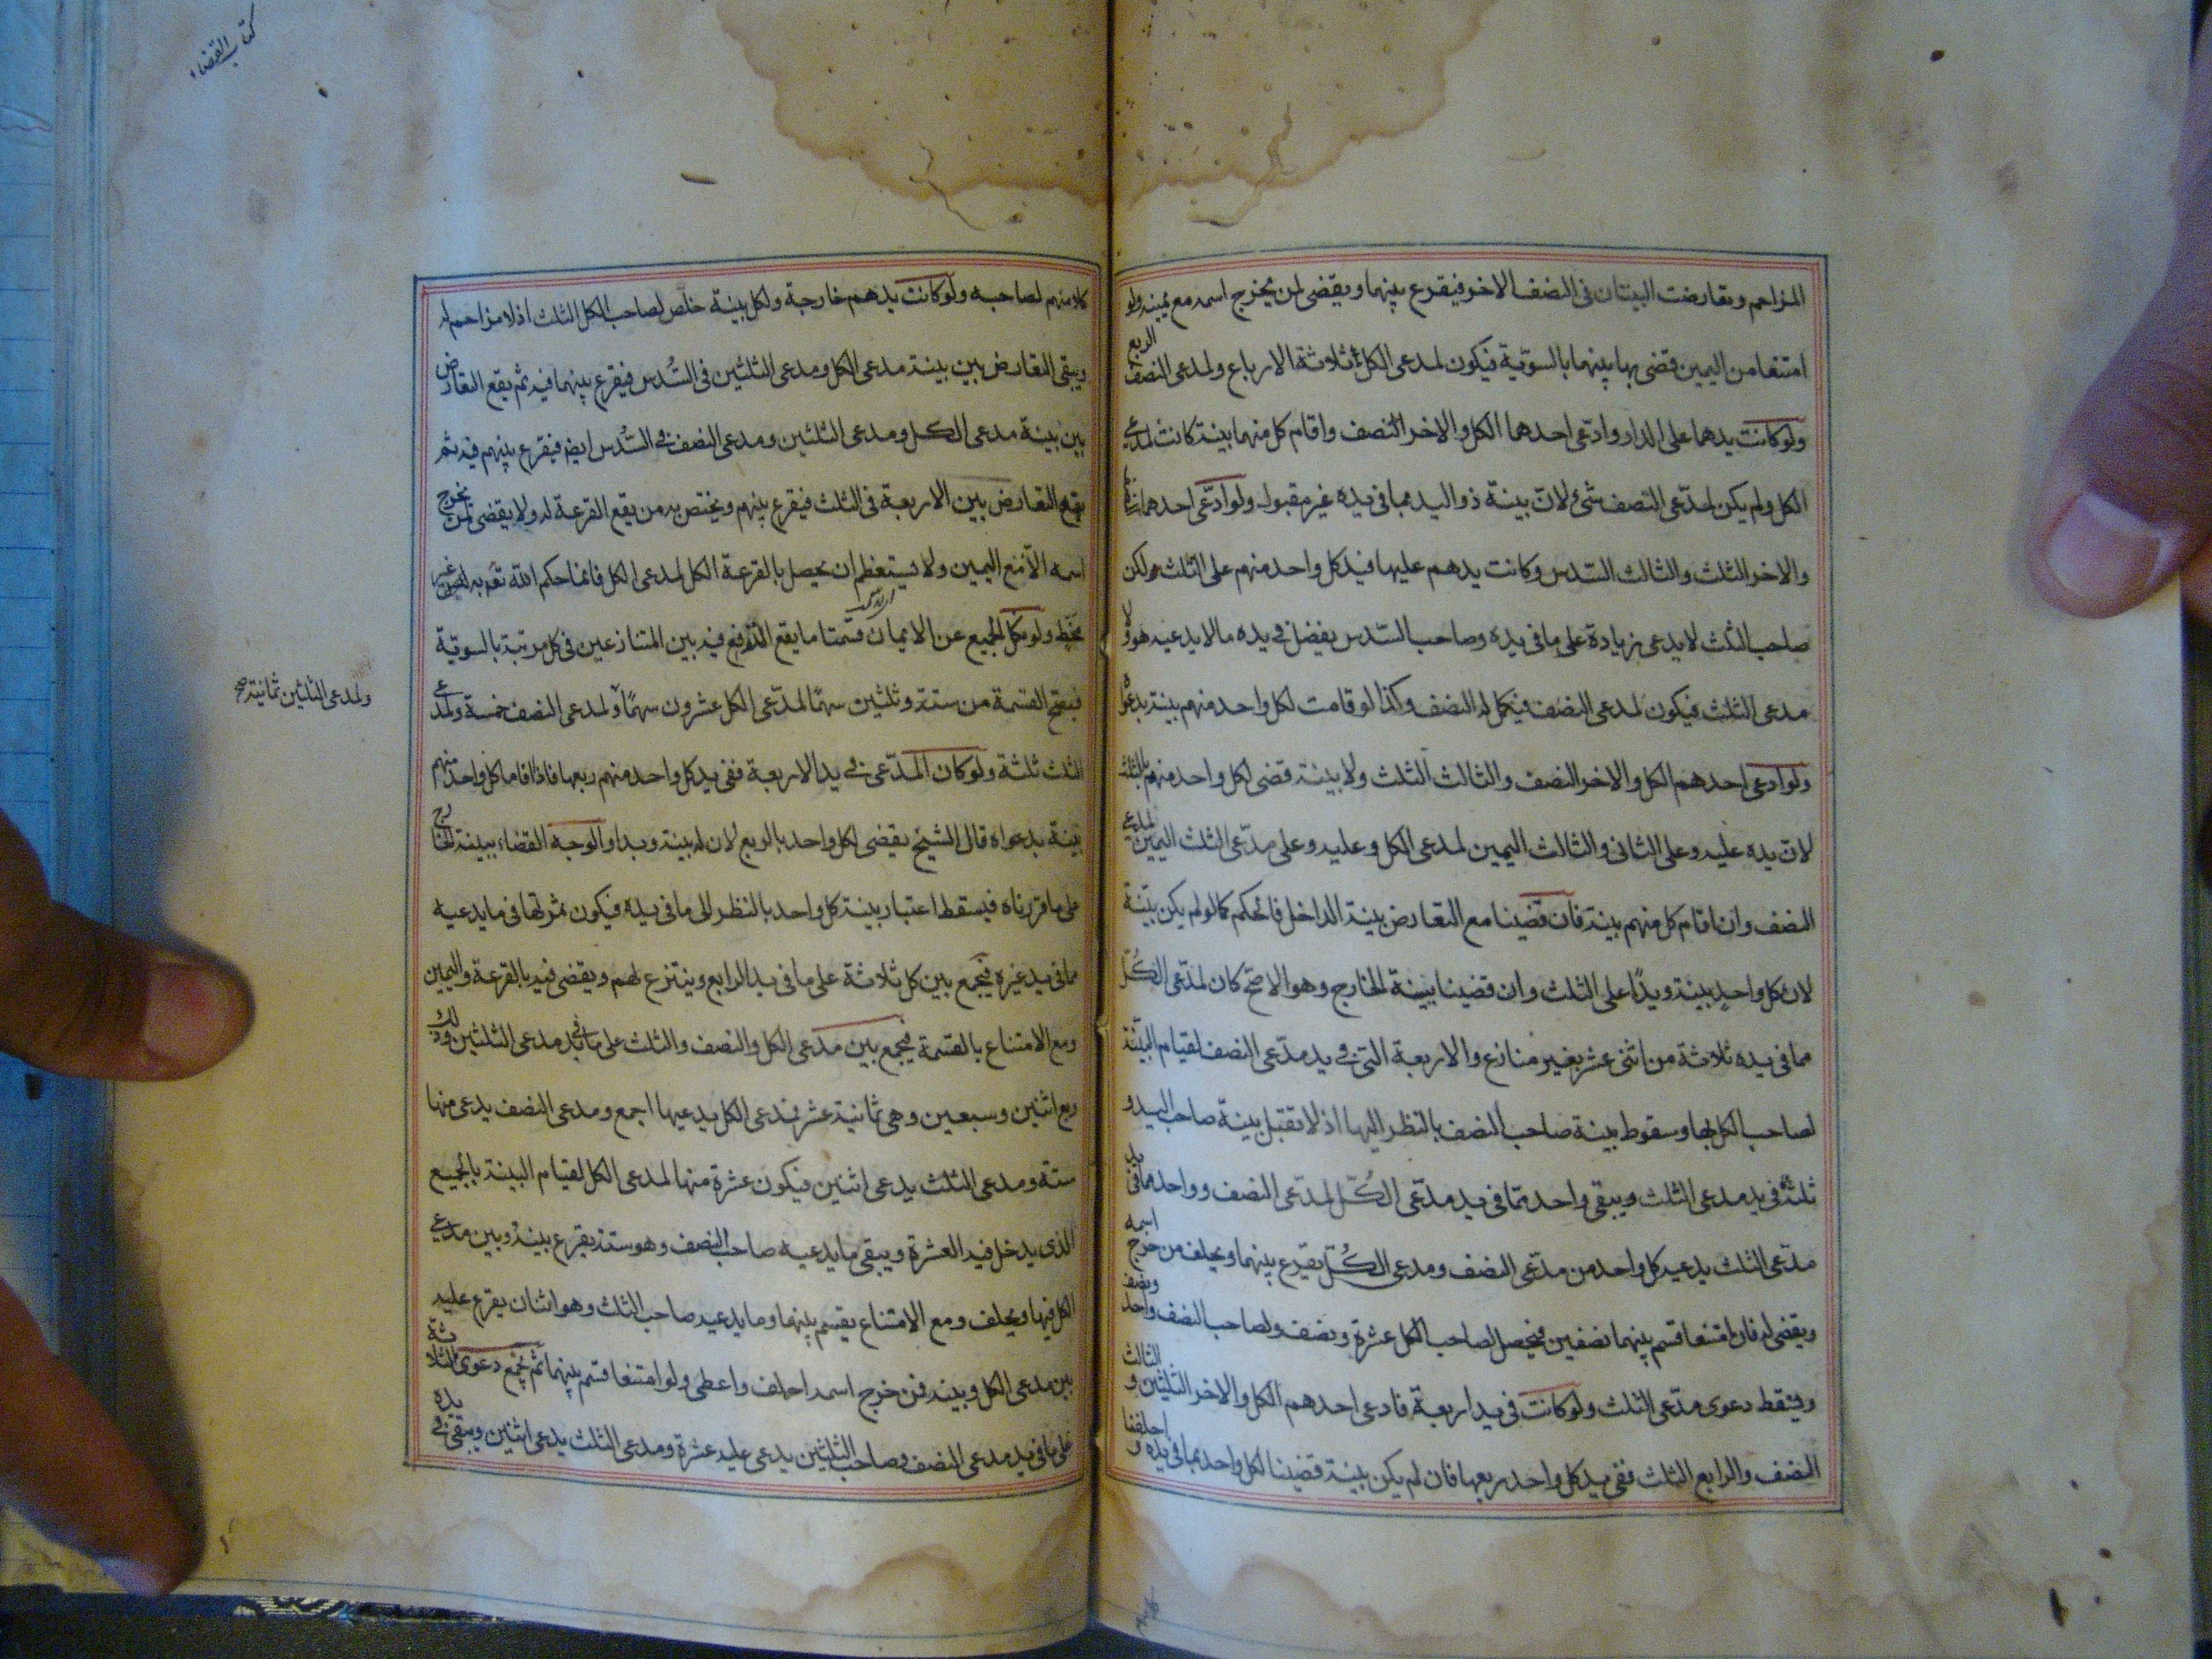 المزاحم وتعارضت البينتان فى النصف الاخر فيقرع بينهما ويقضى لمن يخرج اسمه مع يمينه ولو
امتنعا من اليمين قضى بها بينهما بالسوية فيكون لمدعى الكل ثلاثة الارباع ولمدعى النصف الربع
ولو كانت يدهما على الدار وادعى احدهما الكل والاخر النصف واقام كل منهما بينة كانت لمدعى
الكل ولم يكن لمدعى النصف شئ لان بينة ذو اليد بما فى يده غير مقبولة ولو ادعى احدهم النصف
والاخر الثلث والثالث السدس وكانت يدهم عليها فيد كل واحد منهم على الثلث لكن
صاحب الثلث لا يدعى زيادة على ما فى يده وصاحب السدس يفضل فى يده ما لا يدعيه هو ولا
مدعى الثلث فيكون لمدعى النصف فيكمل له النصف وكذا لو قامت لكل واحد منهم بينة بدعواه
ولو ادعى احدهم الكل والاخر النصف والثالث الثلث ولا بينة قضى لكل واحد منهم بالثلث
لان يده عليه وعلى الثانى والثالث اليمين لمدعى الكل وعليه وعلى مدعى الثلث اليمين لمدعى
النصف وان اقام كل منهم بينة فان قضينا مع التعارض ببينة الداخل فالحكم كما لو لم يكن بينة
لان لكل واحد بينة ويدا على الثلث وان قضينا ببينة الخارج وهو الاصح كان لمدعى الكل
مما فى يده ثلاثة من اثنى عشر بغير منازع والاربعة التى فى يد مدعى النصف لقيام البينة
لصاحب الكل بها وسقوط بينة صاحب النصف بالنظر اليها اذ لا تقبل بينة صاحب اليد و
ثلثة فى يد مدعى الثلث ويبقى واحد مما فى يد مدعى الكل لمدعى النصف وواحد مما فى يد
مدعى الثلث يدعيه كل واحد من مدعى النصف ومدعى الكل يقرع بينهما ويحلف من خرج اسمه
ويقضى له فان امتنعا قسم بينهما نصفين فيحصل لصاحب الكل عشرة ونصف ولصاحب النصف واحد ونصف
ويسقط دعوى مدعى الثلث ولو كانت فى يد اربعة فادعى احدهم الكل والاخر الثلثين والثالث
النصف والرابع الثلث ففى يد كل واحد ربعها فان لم يكن بينة قضينا لكل واحد بما فى يده واحلفنا
كتاب القضاء
كلا منهم لصاحبه ولو كانت يدهم خارجة ولكل بينة خلص لصاحب الكل الثلث اذ لا مزاحم له
ويبقى التعارض بين بينة مدعى الكل ومدعى الثلثين فى السدس فيقرع بينهما فيه ثم يقع التعارض
بين بينة مدعى الكل ومدعى الثلثين ومدعى النصف فى السدس ايضا فيقرع بينهم فيه ثم
يقع التعارض بين الاربعة فى الثلث فيقرع بينهم ويختص به من يقع القرعة له ولا يقضى لمن يخرج
اسمه الا مع اليمين ولا يستعظم ان يحصل بالقرعة الكل لمدعى الكل فانما حكم الله تعم به
يخط ولو نكل الجميع عن الايمان قسمنا ما يقع التدافع فيه بين المتنازعين فى كل مرتبة بالسوية
فيصح القسمة من ستة وثلثين سهما لمدعى الكل عشرون سهما ولمدعى النصف خمسة ولمدعى
ولمدعى الثلثين ثمانية صح
الثلث ثلثة ولو كان المدعى فى يد الاربعة ففى يد كل واحد منهم ربعها فاذا اقام كل واحد منهم
بينة بدعواه قال الشيخ يقضى لكل واحد بالربع لان له بينة ويدا والوجه القضاء ببينة الخارج
على ما قررناه فيسقط اعتبار بينة كل واحد بالنظر الى ما فى يده فيكون ثمرتها فى ما يدعيه
مما فى يد غيره فيجمع بين كل ثلاثة على ما فى يد الرابع وينتزع لهم ويقضى فيه بالقرعة واليمين
ومع الامتناع بالقسمة فيجمع بين مدعى الكل والنصف والثلث على ما فى يد مدعى الثلثين وذلك
ربع اثنين وسبعين وهى ثمانية عشر فمدعى الكل يدعيها اجمع ومدعى النصف يدعى منها
ستة ومدعى الثلث يدعى اثنين فيكون عشرة منها لمدعى الكل لقيام البينة بالجميع
الذى يدخل فيه العشرة ويبقى ما يدعيه صاحب النصف وهو ستة يقرع بينه وبين مدعى
الكل فيها ويحلف ومع الامتناع يقسم بينهما وما يدعيه صاحب الثلث وهو اثنان يقرع عليه
بين مدعى الكل وبينه فمن خرج اسمه احلف واعطى ولو امتنعا قسم بينهما ثم يجمع دعوى الثلاثة
على ما فى يد مدعى النصف وصاحب الثلثين يدعى عليه عشرة ومدعى الثلث يدعى اثنين ويبقى فى يده